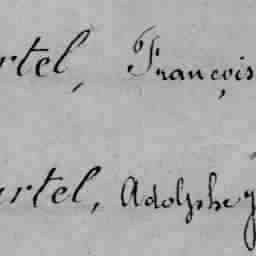 rtel, François
artel, Adolphe